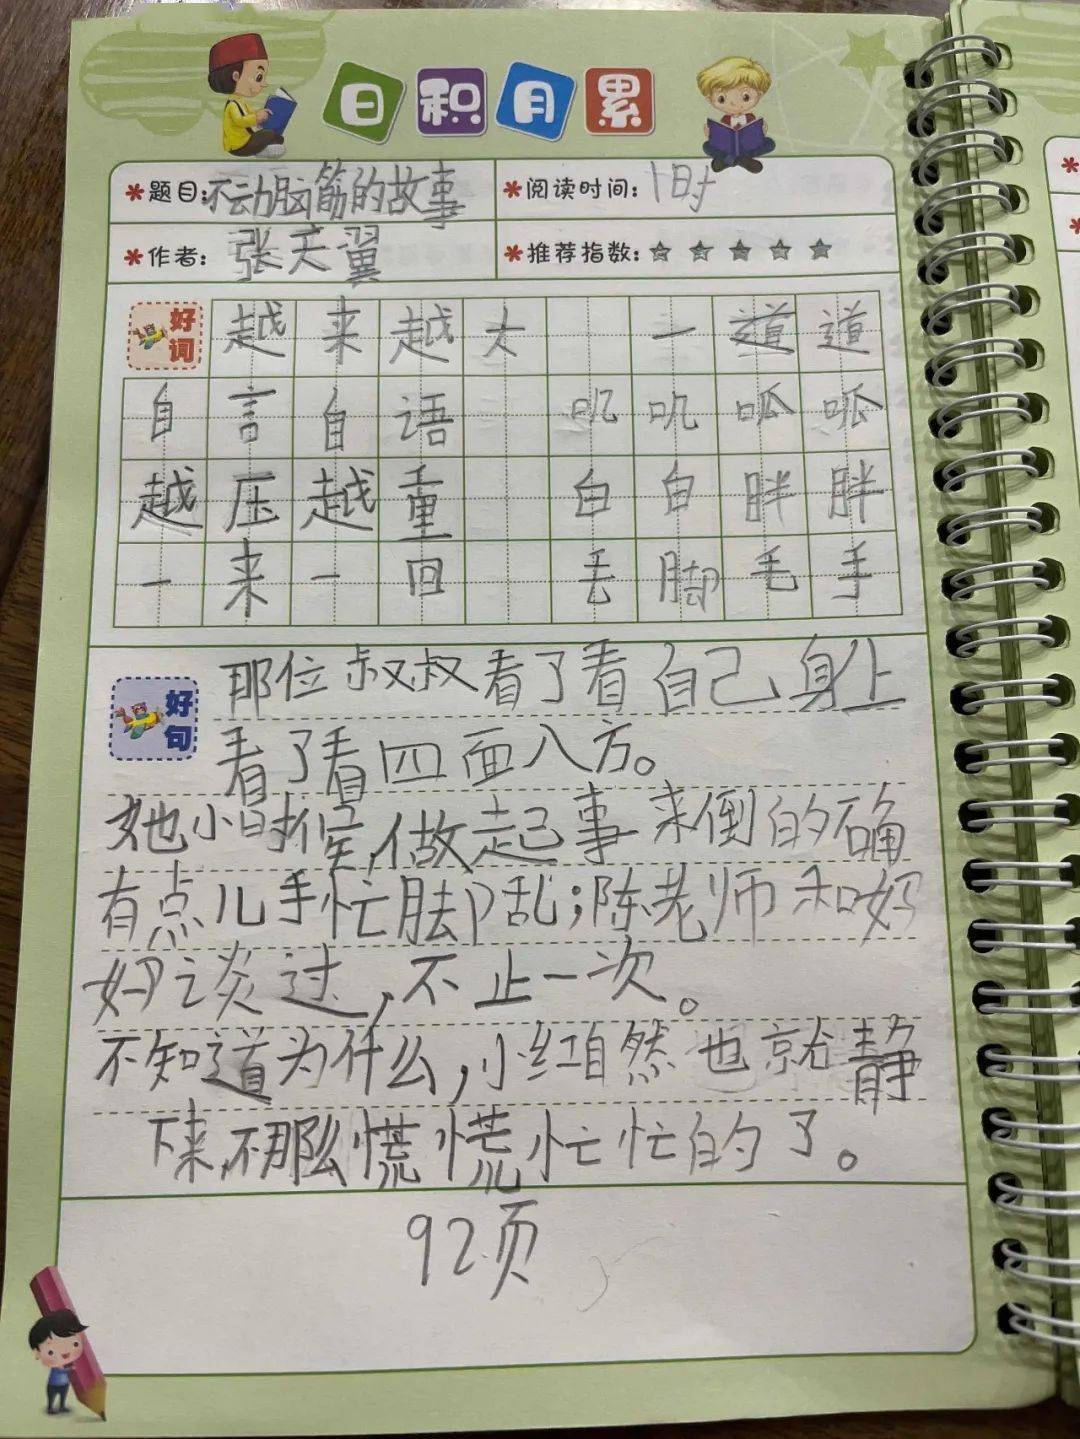 日积月累
*题目:不动脑筋的故事 *阅读时间:1时
*作者:张天翼 *推荐指数:☆☆☆☆☆
好词 越来越大 一道道
自言自语 叽叽呱呱
越压越重 白白胖胖
一来一回 丢脚毛手
好句 那位叔叔看了看自己身上
看了看四面八方。
她小时候,做起事来倒的确
有点儿手忙脚乱;陈老师和妈
妈谈过,不止一次。
不知道为什么,小红自然也就静
下来,不那么慌慌忙忙的了。
92页